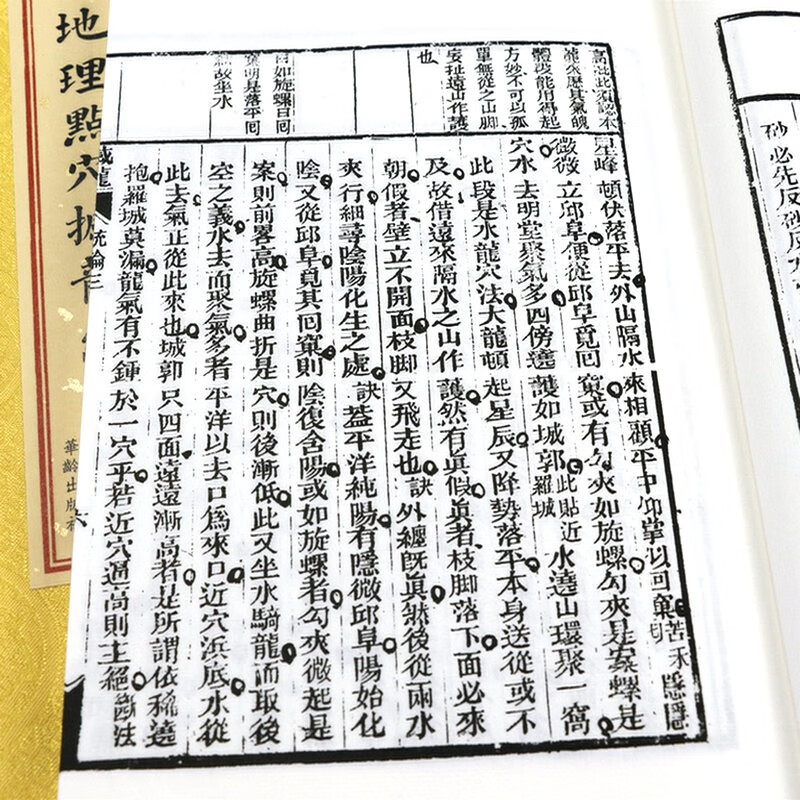 龍來歷其氣魄
體段能用得起
方妙不可以孤
單無從之山脚
妄扯遠山作護
也
目如旋螺日囘
窠明是落平囘
結故坐水
星峰頓伏落平去外山隔水來相顧平中仰掌以囘窠 隱隱
微微立邱阜便從邱阜覓囘窠或有勾夾如旋螺勾夾是案螺是
穴水去明堂聚氣多四傍遶護如城郭羅城此貼近水遶山環聚一窩
此段是水龍穴法大龍頓起星辰又降勢落平本身送從或不
及故借遠來隔水之山作護然有眞假眞者枝脚落下面必來
朝假者壁立不開面枝脚又飛走也訣外纏既眞然後從兩水
夾行細尋陰陽化生之處訣蓋平洋純陽有隱微邱阜陽始化
陰又從邱阜覓其囘窠則陰復含陽或如旋螺者勾夾微起是
案則前畧高旋螺曲折是穴則後漸低此又坐水騎龍而取後
空之義水去而聚氣多者平洋以去口為來口近穴浜底水從
此去氣止從此來也城郭只四面遠遠漸高者是所謂依稀遶
抱羅城莫漏龍氣有不鍾於一穴乎若近穴逼高則主絕斷法
統論
地理點穴撼
華齡出版社
砂必先反砂